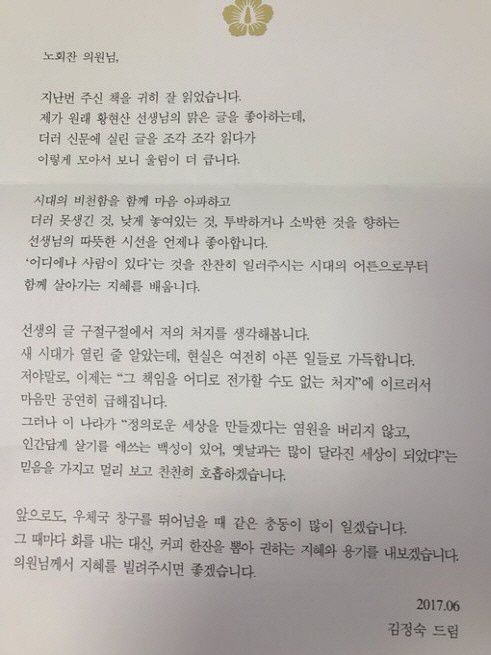 노회찬 의원님,
지난번 주신 책을 귀히 잘 읽었습니다.
제가 원래 황현산 선생님의 맑은 글을 좋아하는데,
더러 신문에 실린 글을 조각 조각 읽다가
이렇게 모아서 보니 울림이 더 큽니다.
시대의 비천함을 함께 마음 아파하고
더러 못생긴 것, 낮게 놓여있는 것, 투박하거나 소박한 것을 향하는
선생님의 따뜻한 시선을 언제나 좋아합니다.
‘어디에나 사람이 있다’는 것을 찬찬히 일러주시는 시대의 어른으로부터
함께 살아가는 지혜를 배웁니다.
선생의 글 구절구절에서 저의 처지를 생각해봅니다.
새 시대가 열린 줄 알았는데, 현실은 여전히 아픈 일들로 가득합니다.
저야말로, 이제는 “그 책임을 어디로 전가할 수도 없는 처지”에 이르러서
마음만 공연히 급해집니다.
그러나 이 나라가 “정의로운 세상을 만들겠다는 염원을 버리지 않고,
인간답게 살기를 애쓰는 백성이 있어, 옛날과는 많이 달라진 세상이 되었다”는
믿음을 가지고 멀리 보고 찬찬히 호흡하겠습니다.
앞으로도, 우체국 창구를 뛰어넘을 때 같은 충동이 많이 일겠습니다.
그 때마다 화를 내는 대신, 커피 한잔을 뽑아 권하는 지혜와 용기를 내보겠습니다.
의원님께서 지혜를 빌려주시면 좋겠습니다.
2017.06
김정숙 드림